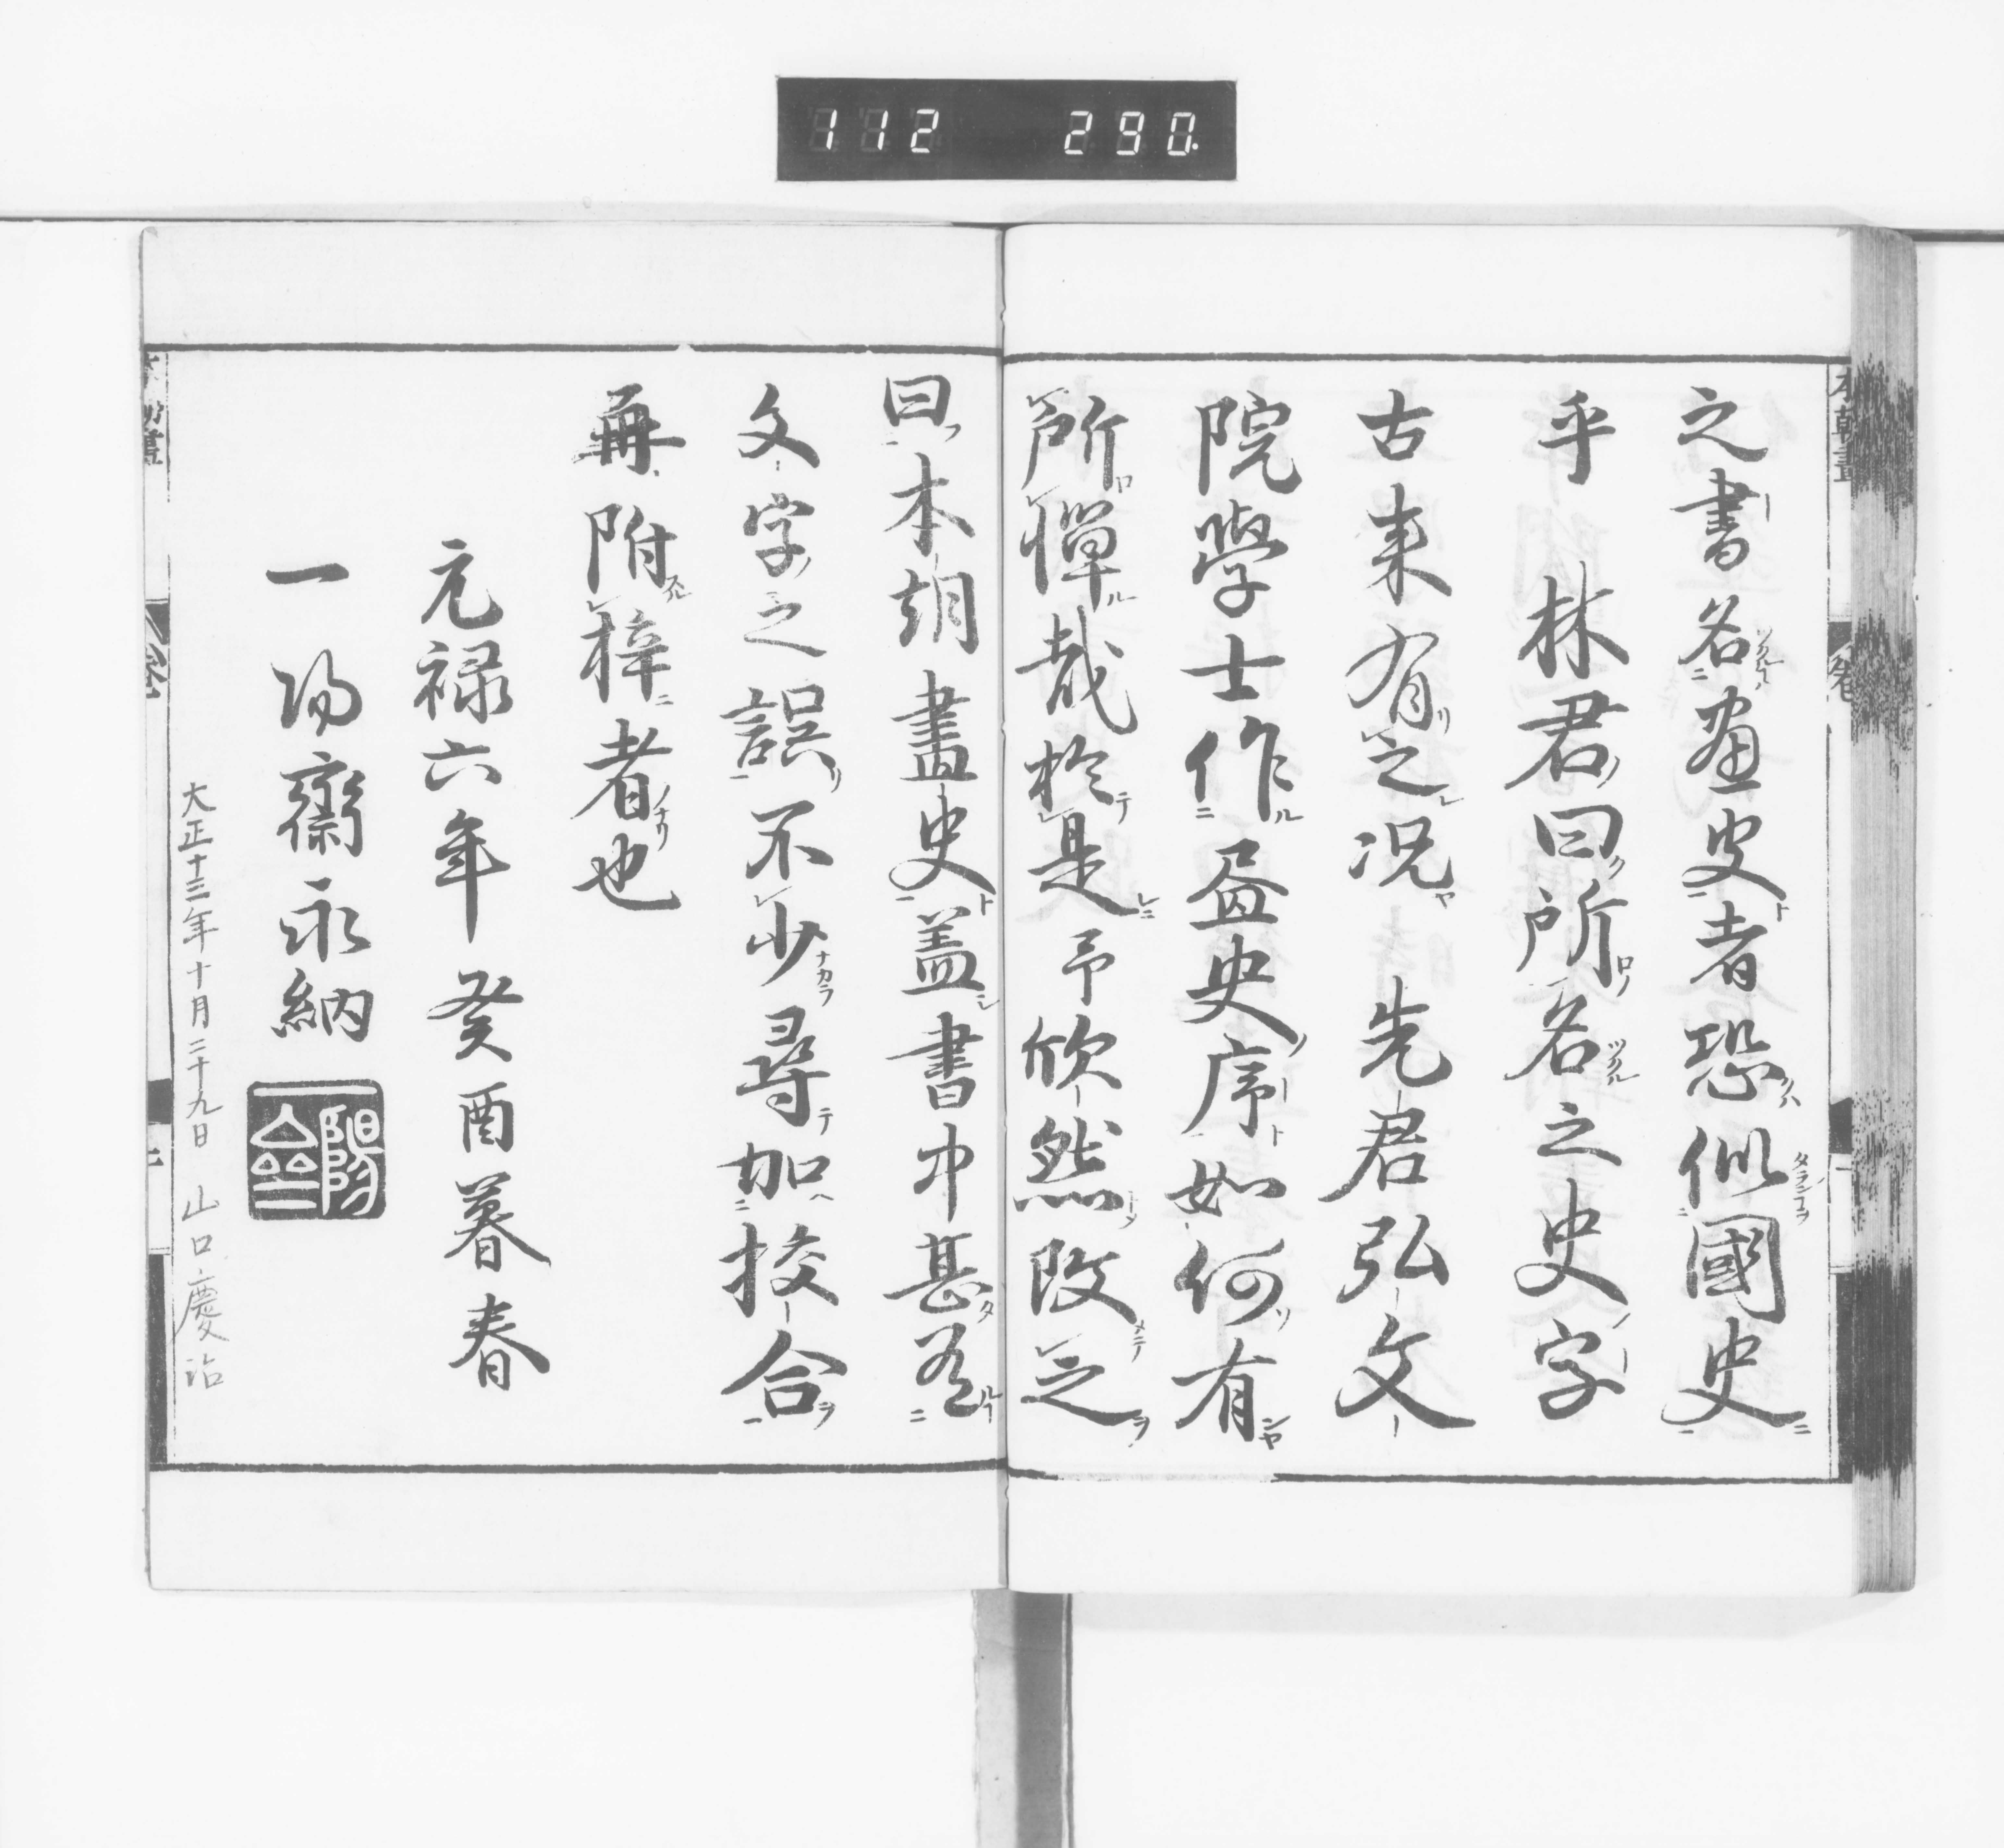 112 290
之書名画史者恐似國史
乎 林君曰所名之史字
古来有之况 先君弘文
院學士作畫史序如何有
所憚哉於是予欣然改之
曰本朝畫史蓋書中甚多
文字之誤不少尋加挍合
再附梓者也
元禄六年癸酉暮春
一陽齋永納
大正十三年十月二十九日 山口慶治